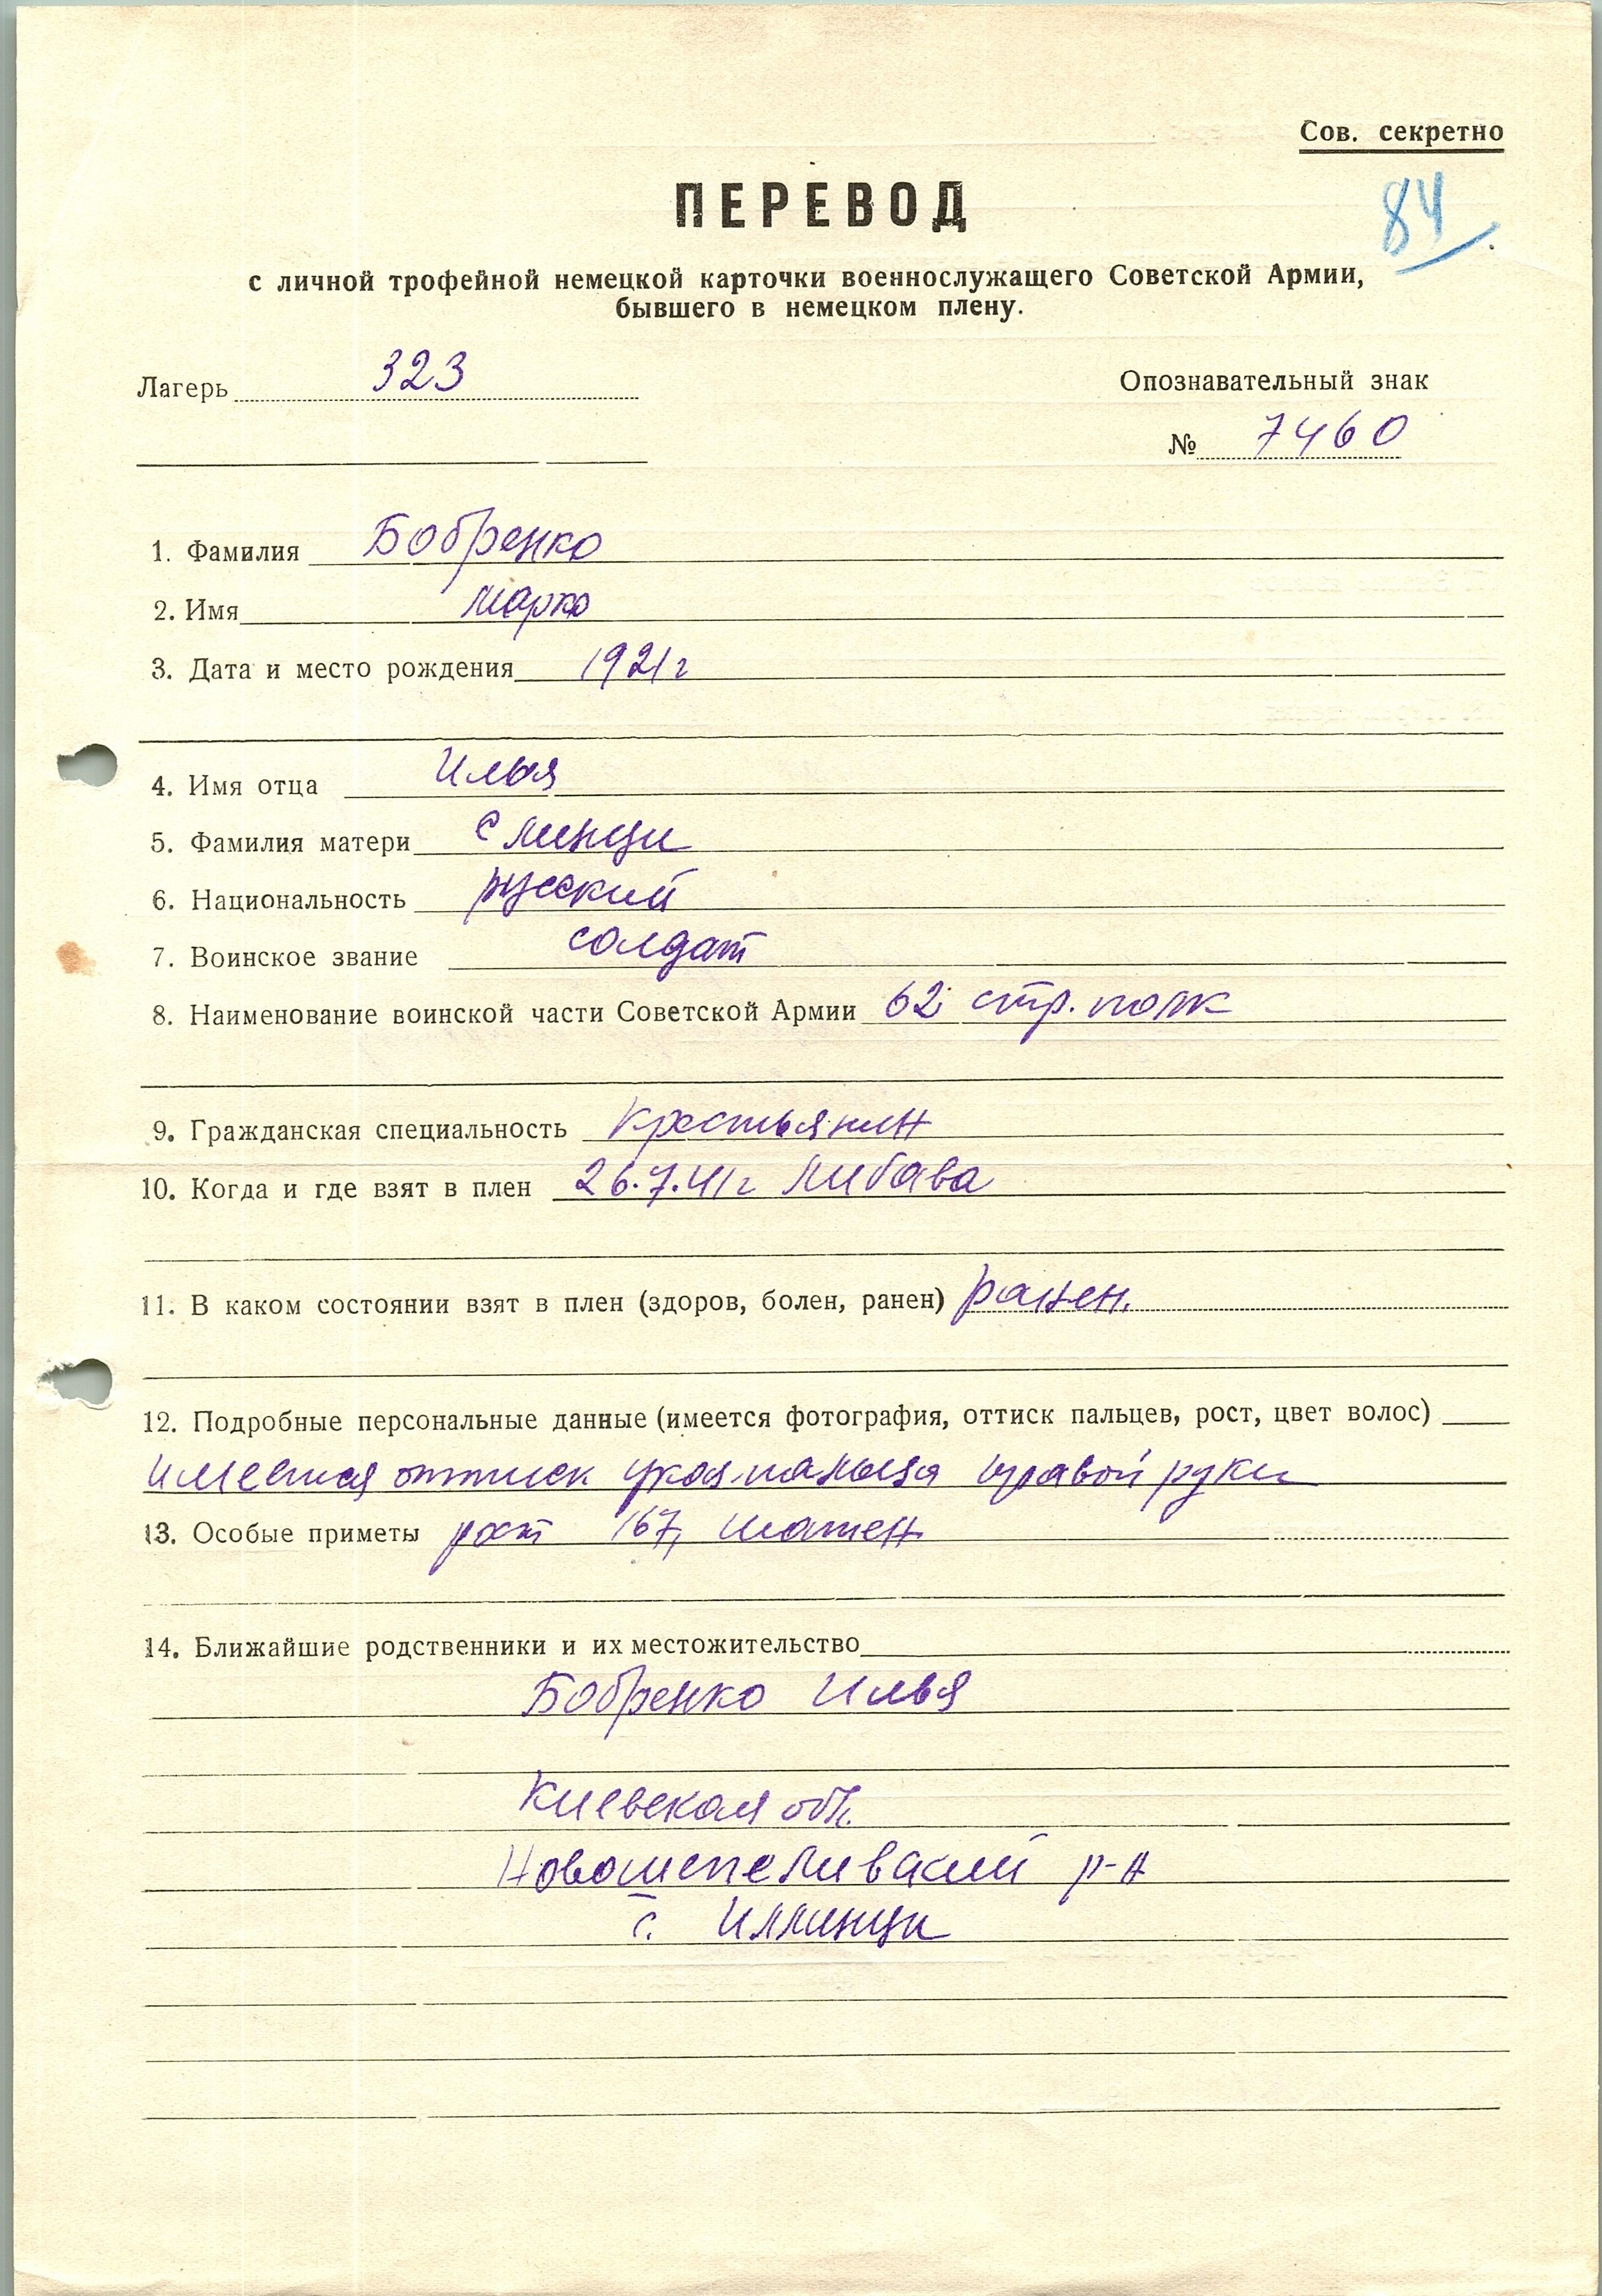 Сов. секретно
ПЕРЕВОД
84
с личной трофейной немецкой карточки военнослужащего Советской Армии,
бывшего в немецком плену.
Лагерь 323
Опознавательный знак
№ 7460
1. Фамилия Бобренко
2. Имя Марко
3. Дата и место рождения 1921г
4. Имя отца Илья
5. Фамилия матери Слинци
6. Национальность русский
7. Воинское звание солдат
8. Наименование воинской части Советской Армии 62 стр. полк
9. Гражданская специальность крестьянин
10. Когда и где взят в плен 26.7.41г Либава
11. В каком состоянии взят в плен (здоров, болен, ранен) ранен.
12. Подробные персональные данные (имеется фотография, оттиск пальцев, рост, цвет волос)
имеется оттиск указ. пальца правой руки
13. Особые приметы рост 167, шатен
14. Ближайшие родственники и их местожительство
Бобренко Илья
Киевская обл.
Новошепеливский р-н
с. Иллинци